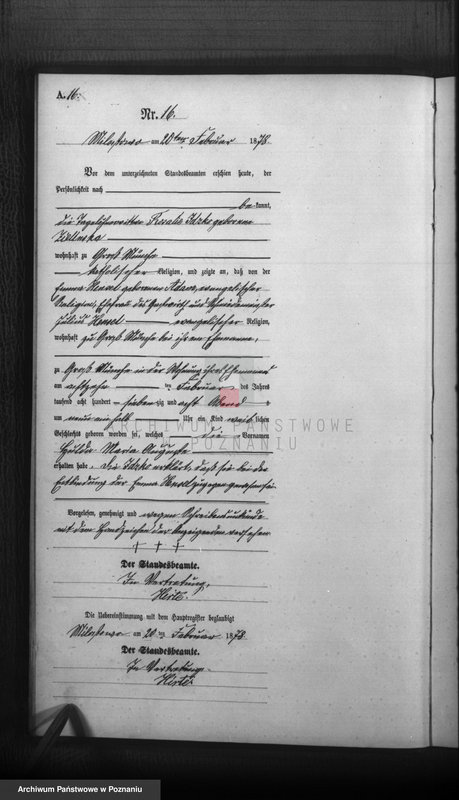 A. 16.
Nr. 16.
Milostowo am 20ten Februar 1878.
Vor dem unterzeichneten Standesbeamten erschien heute, der
Persönlichkeit nach
be kannt,
die Tagelöhnerwittwe Rosalie geborene
wohnhaft zu Groß Münche
katholischer Religion, und zeigte an, daß von der
Emma Hensel geborenen evangelischer
Religion, Ehefrau des Gastwirth und Schneidemeister
Julius Hensel evangelischer Religion,
wohnhaft zu Groß Münche bei ihrem Ehemanne,
zu Groß Münche in der Wohnung ihres Ehemannes
am achtzehn ten Februar des Jahres
tausend acht hundert sieben zig und acht Abend s
um neun ein halb Uhr ein Kind weib lichen
Geschlechts geboren worden sei, welches die Vornamen
Hulda Maria Auguste
erhalten habe. Die erklärt, daß sie bei der
Entbindung der Emma Hensel zugegen gewesen sei.
Vorgelesen, genehmigt und wegen Schreibensunkunde
mit dem Handzeichen der Anzeigenden versehen
† † †
Der Standesbeamte.
In Vertretung.
Die Uebereinstimmung mit dem Hauptregister beglaubigt
Milostowo am 20 ten Februar 1878.
Der Standesbeamte.
In Vertretung.
ARCHIWUM PAŃSTWOWE
W POZNANIU
Archiwum Państwowe w Poznaniu